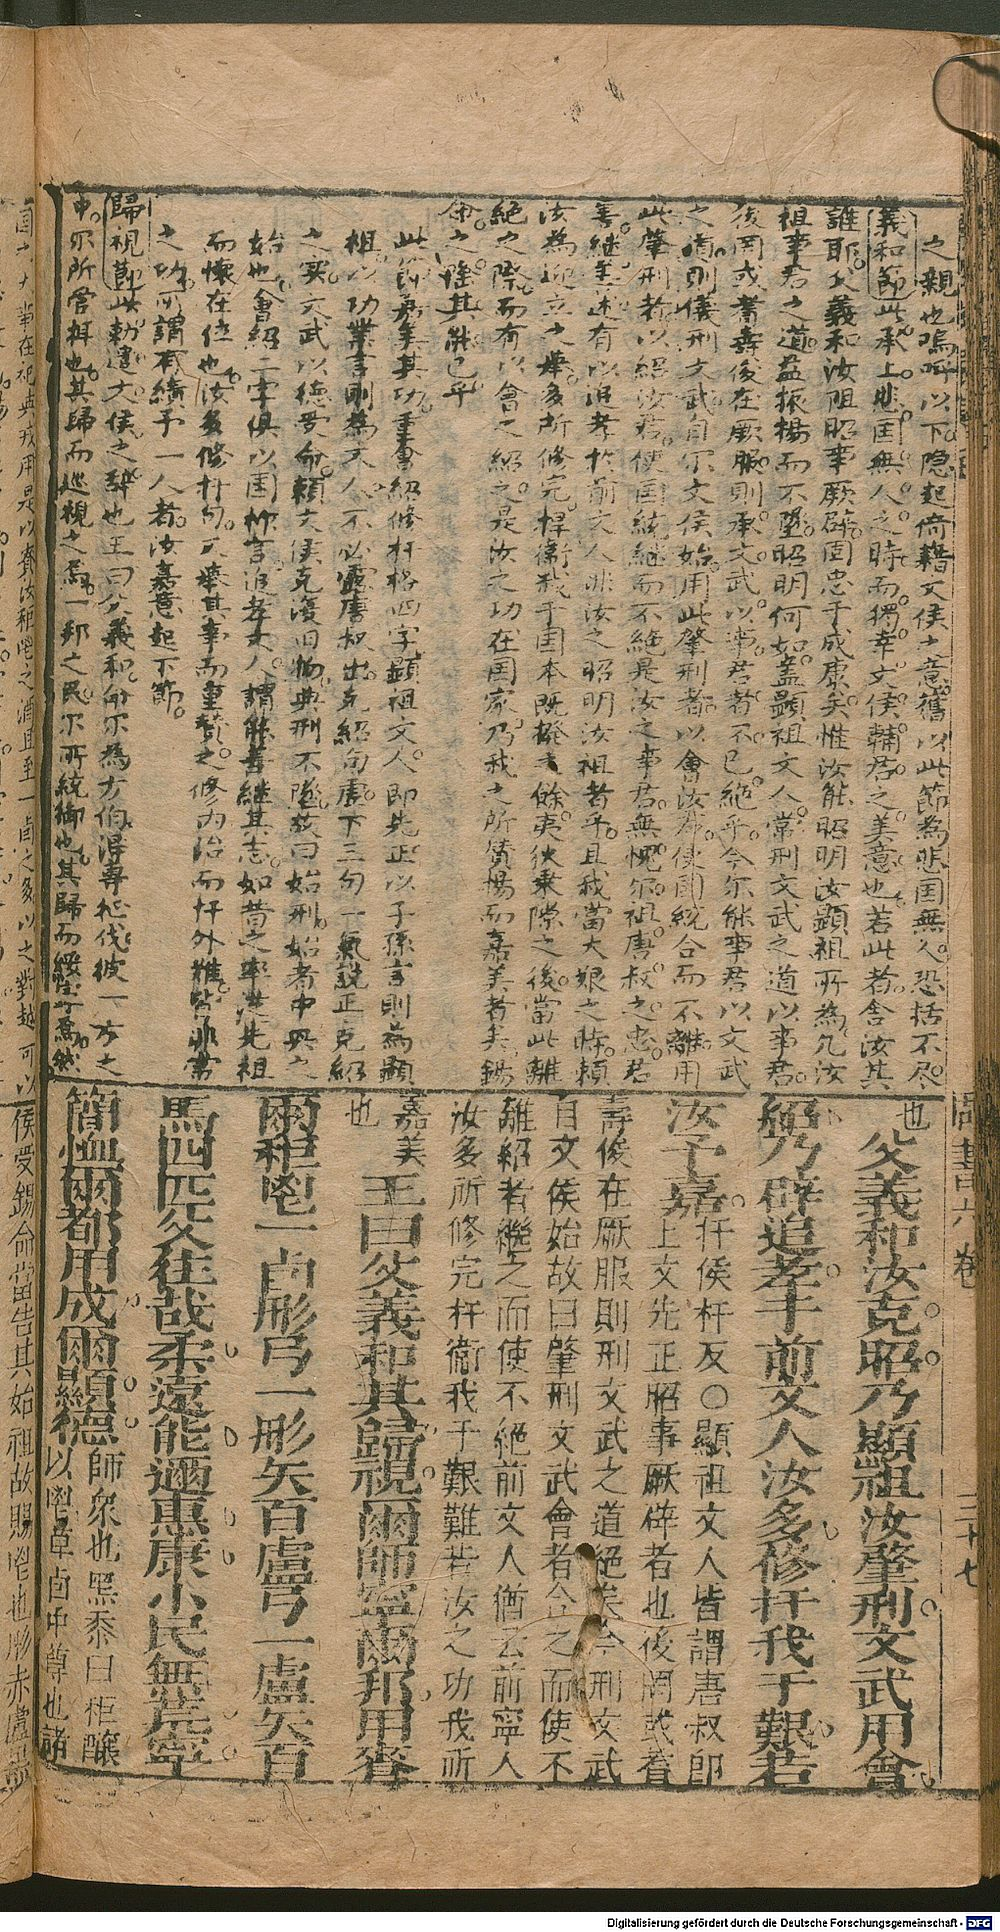 之親也嗚呼以下隱起倚藉文侯之意舊以此節為悲国無人恐括不尽
義和節此承上悲国無人之時而獨幸文侯輔君之美意也若此者舍汝其
誰耶父義和汝祖昭事厥辟固忠于成康矣惟汝能昭明汝顯祖所為凡汝
祖事君之道益振揚而不墜昭明何如盖顯祖文人常刑文武之道以事君
後罔或耆壽俊在厥服則承文武以事君者不已絶乎今尔能事君以文武
之道則儀刑文武自尔文侯始用此肇刑者以會汝君使国統合而不離用
此肇刑者以紹汝君使国統継而不絶是汝之事君無愧尔祖唐叔之忠君
善継善述有以追孝於前文人非汝之昭明汝祖者乎且我當大艱之時頼
汝為迎立之舉多所修完捍衛我于国本既撥之餘夷狄乘隙之後當此離
絶之際而有以會之紹之是汝之功在国家乃我之所賛揚而嘉美者矣錫
命之隆其能已乎
此節嘉美其功重會紹修扞格四字顯祖文人即先正以子孫言則為顯
祖以功業言則為文人不必露唐叔出克紹句虚下三句一氣説正克紹
之実文武以徳受命頼文侯克復旧物典刑不墜故曰始刑始者中興之
始也會紹二字俱以国祚言追孝文人謂能善継其志如昔之率先祖
而懷在位也汝多修扞句又舉其事而重賛之修内治而扞外難皆非常
之功可謂有績予一人者汝嘉意起下節
歸視節此勅遣文侯之辞也王曰父義和向尔為方伯得專征伐彼一方之
衆尔所管轄也其歸而巡視之焉一邦之民尔所統御也其歸而綏寧焉然
也
父義和汝克昭乃顯祖汝肇刑文武用會
紹乃辟追孝于前文人汝多修扞我于艱若
汝予嘉扞侯杆反〇顯祖文人皆謂唐叔即
上文先正昭事厥辟者也後罔或耆
壽俊在厥服則刑文武之道絶矣今刑文武
自文侯始故曰肇刑文武會者合之而使不
離紹者繼之而使不絶前文人猶云前寧人
汝多所修完扞衛我于艱難若汝之功我所
嘉美
也
王曰父義和其歸視爾師寧爾邦用賚
爾秬鬯一卣彤弓一彤矢百盧弓一盧矢百
馬四匹父往哉柔遠能邇惠康小民無荒寧
簡恤爾都用成爾顯德師衆也黑黍曰秬釀
以鬯草卣中尊也諸
周書 六卷 二十七
侯受錫命當告其始祖故賜鬯也彤赤盧黑
Digitalisierung gefördert durch die Deutsche Forschungsgemeinschaft - DFG